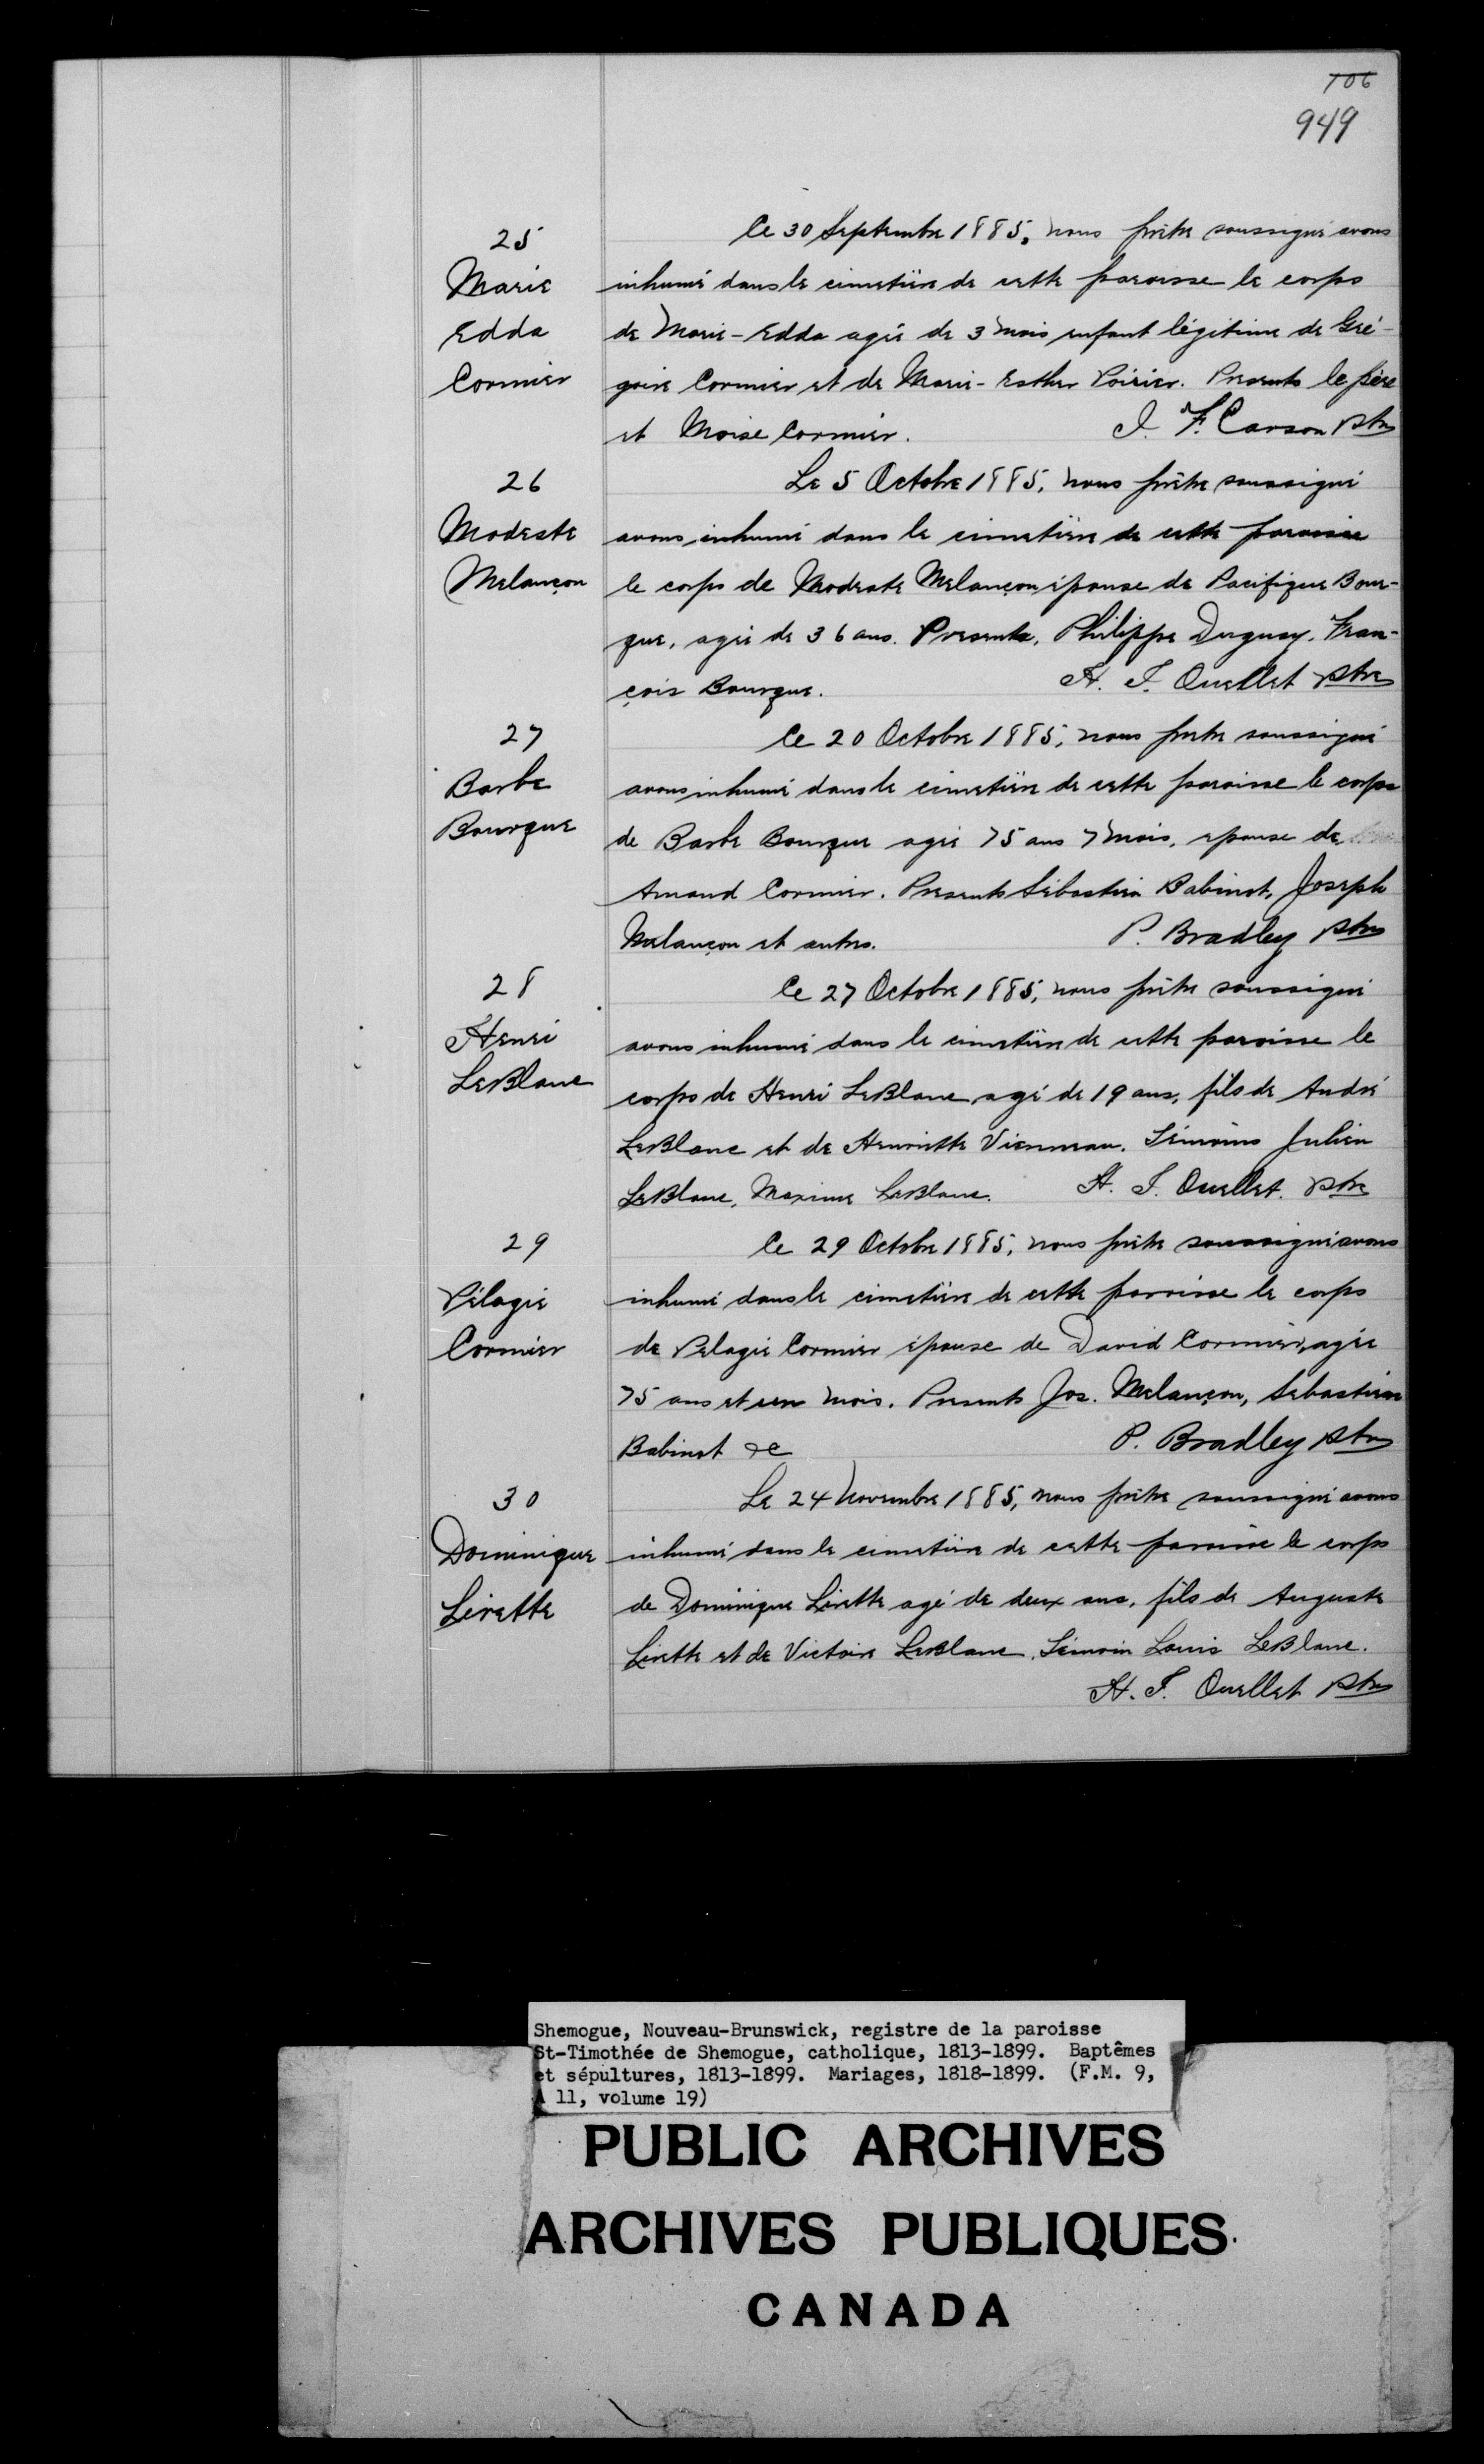 106
949
25
Marie
Edda
Cormier
Ce 30 Septembre 1885, nous prêtre soussigné avons
inhumé dans le cimetière de cette paroisse le corps
de Marie-Edda agée de 3 mois enfant légitime de Gré-
goire Cormier et de Marie-Esther Poirier. Presents le père
et Moise Cormier. J. F. Carson ptre
26
Modeste
Melançon
Le 5 Octobre 1885, nous prêtre soussigné
avons inhumé dans le cimetière de cette paroisse
le corps de Modeste Melançon épouse de Pacifique Bour-
que, agée de 36 ans. Presents, Philippe Duguay, Fran-
çois Bourque. H. J. Ouellet ptre
27
Barbe
Bourque
Ce 20 Octobre 1885, nous pretre soussigné
avons inhumé dans le cimetière de cette paroisse le corps
de Barbe Bourque agée 75 ans 7 mois, epouse de
Amand Cormier. Presents Sébastien Babinot, Joseph
Melançon et autres. P. Bradley ptre
28
Henri
LeBlanc
Ce 27 Octobre 1885, nous prêtre soussigné
avons inhumé dans le cimetière de cette paroisse le
corps de Henri LeBlanc agé de 19 ans, fils de André
LeBlanc et de Henriette Vienneau. Témoins Julien
LeBlanc, Maxime LeBlanc. H. J. Ouellet. ptre
29
Pélagie
Cormier
Ce 29 Octobre 1885, nous prêtre soussigné avons
inhumé dans le cimetière de cette paroisse le corps
de Pelagie Cormier épouse de David Cormier, agée
75 ans et un mois. Presents Jos. Melançon, Sebastien
Babinot &c P. Bradley ptre
30
Dominique
Lirette
Le 24 Novembre 1885, nous prêtre soussigné avons
inhumé dans le cimetière de cette paroisse le corps
de Dominique Lirette agé de deux ans, fils de Auguste
Lirette et de Victoire LeBlanc. Témoin Louis LeBlanc.
H. J. Ouellet ptre
Shemogue, Nouveau-Brunswick, registre de la paroisse
St-Timothée de Shemogue, catholique, 1813-1899. Baptêmes
et sépultures, 1813-1899. Mariages, 1818-1899. (F.M. 9,
A 11, volume 19)
PUBLIC ARCHIVES
ARCHIVES PUBLIQUES
CANADA